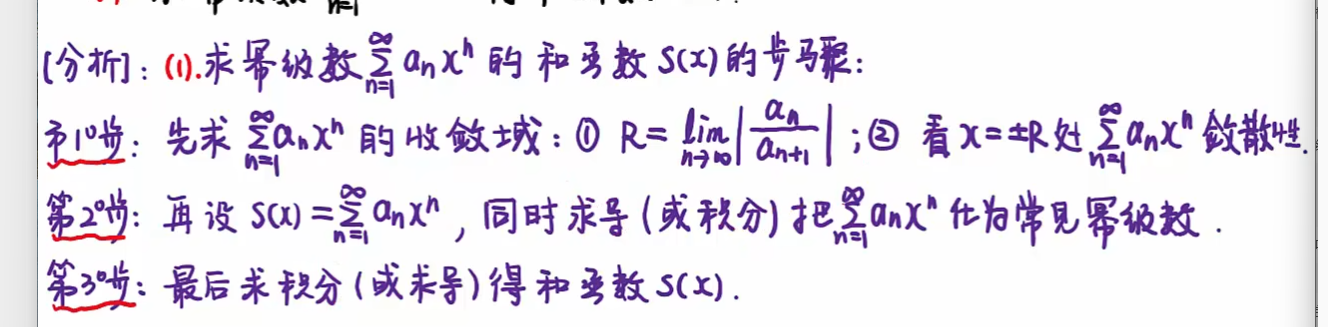 [分析]：(1).求幂级数∑_{n=1}^{∞} aₙxⁿ 的和函数 S(x) 的步骤：
第1°步：先求 ∑_{n=1}^{∞} aₙxⁿ 的收敛域：① R = lim_{n→∞} |aₙ/aₙ₊₁| ；② 看 x=±R 处 ∑_{n=1}^{∞} aₙxⁿ 敛散性.
第2°步：再设 S(x) = ∑_{n=1}^{∞} aₙxⁿ，同时求导（或积分）把 ∑_{n=1}^{∞} aₙxⁿ 化为常见幂级数.
第3°步：最后求积分（或求导）得和函数 S(x).